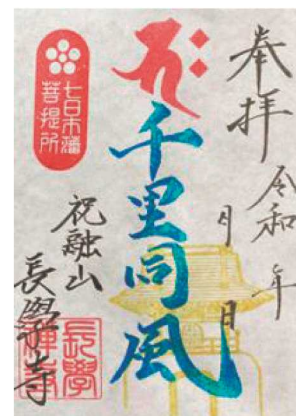 奉拝
令和 年
月 日
千里同風
七日市藩
菩提所
祝融山
長學寺
長學
禅寺